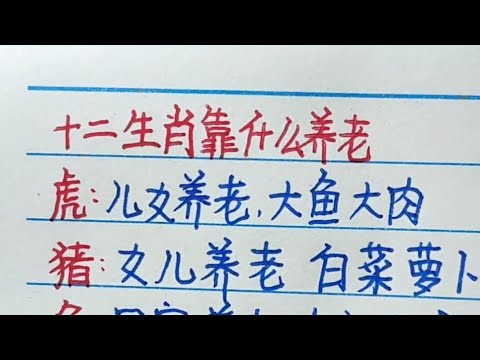 十二生肖靠什么养老
虎:儿女养老,大鱼大肉
猪:女儿养老 白菜萝卜